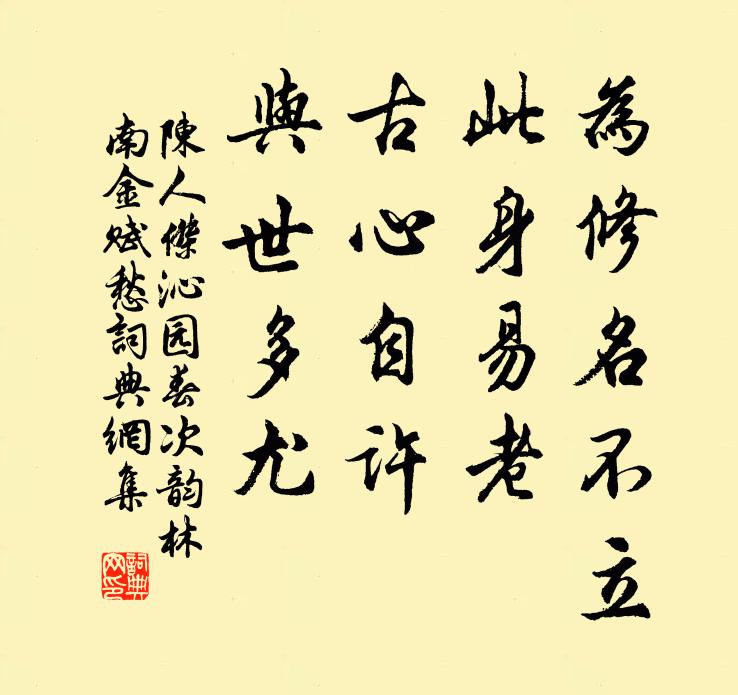 為修名不立
此身易老
古心自許
與世多尤
陳人傑沁园春次韵林
南金賦愁詞典網集
詞典網印